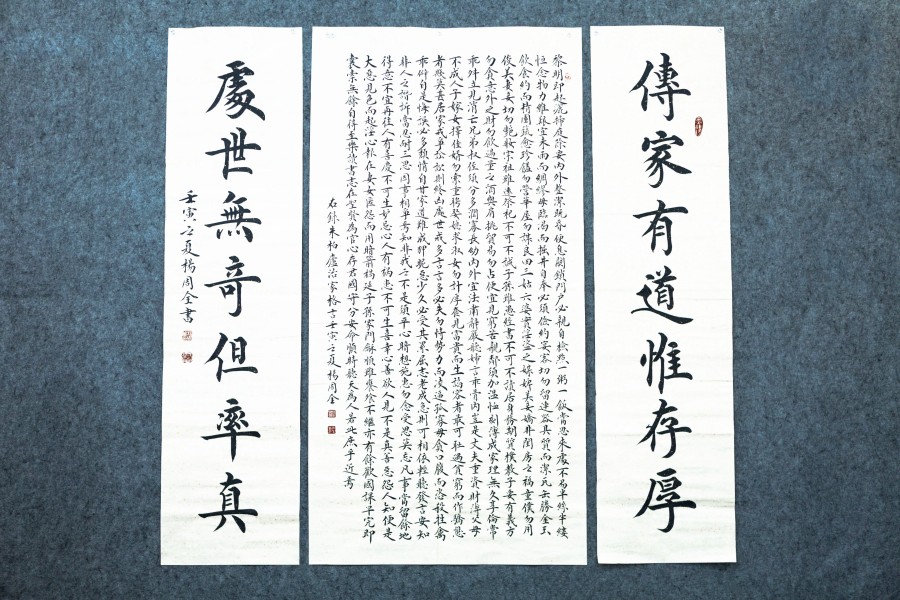 傳家有道惟存厚
黎明即起灑掃庭除要內外整潔既昏便息關鎖門戶必親自檢點一粥一飯當思來處不易半絲半縷
恒念物力維艱宜未雨而綢繆毋臨渴而掘井自奉必須儉約宴客切勿留連器具質而潔瓦缶勝金玉
飲食約而精園蔬愈珍饈勿營華屋勿謀良田三姑六婆實淫盜之媒婢美妾嬌非閨房之福童僕勿用
俊美妻妾切勿艷妝宗祖雖遠祭祀不可不誠子孫雖愚經書不可不讀居身務期質樸教子要有義方
勿貪意外之財勿飲過量之酒與肩挑貿易勿占便宜見窮苦親鄰須加溫恤刻薄成家理無久享倫常
乖舛立見消亡兄弟叔侄須分多潤寡長幼內外宜法肅辭嚴聽婦言乖骨肉豈是丈夫重資財薄父母
不成人子嫁女擇佳婿勿索重聘娶媳求淑女勿計厚奩見富貴而生諂容者最可恥遇貧窮而作驕態
者賤莫甚居家戒爭訟訟則終凶處世戒多言言多必失勿恃勢力而凌逼孤寡毋貪口腹而恣殺牲禽
乖僻自是悔誤必多頹惰自甘家道難成狎昵惡少久必受其累屈志老成急則可相依輕聽發言安知
非人之譖訴當忍耐三思因事相爭焉知非我之不是須平心暗想施惠勿念受恩莫忘凡事當留餘地
得意不宜再往人有喜慶不可生妒忌心人有禍患不可生喜幸心善欲人見不是真善惡恐人知便是
大惡見色而起淫心報在妻女匿怨而用暗箭禍延子孫家門穌順雖饔飧不繼亦有餘歡國課早完即
囊橐無餘自得至樂讀書志在聖賢為官心存君國守分安命順時聽天為人若此庶乎近焉
右錄朱柏廬治家格言壬寅之夏楊周全
處世無奇但率真
壬寅之夏楊周全書